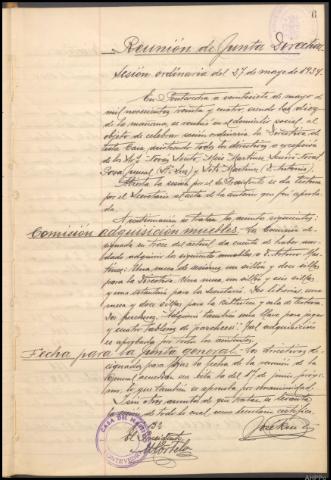 6
Reunión de Junta Directiva
Sesión ordinaria del 27 de mayo de 1934.
En Pontevedra a veintisiete de mayo de
mil novecientos treinta y cuatro, siendo las diez
de la mañana, se reunió en el domicilio social al
objeto de celebrar sesión ordinaria la Directiva de
esta Casa, asistiendo todos los directivos a excepción
de los Srs.
Abierta la sesión por el Sr. Presidente se da lectura
por el Secretario al acta de la anterior que fué aproba-
da.
A continuación se tratan los asuntos siguientes:
Comisión adquisición muebles: La Comisión de-
signada en trece del actual da cuenta de haber
adquirido los siguientes muebles a D. Antonio
Una mesa de sesiones, un sillón y doce sillas
para la Directiva. Una mesa, un sillón y seis sillas
y una estantería para la Secretaría.
mesa y doce sillas para la biblioteca y sala de lectura.
Adquirir también para juegos
y cuatro tableros de parchessi. Tal adquisición
es aprobada por todos los asistentes.
Fecha para la junta general: Los directivos de-
signados para fijar la fecha de la reunión de la
General acuerdan sea ésta la del 17 de junio próxi-
mo, lo que también es aprobado por unanimidad.
Y sin otros asuntos de que tratar se levanta
la sesión de todo lo cual como Secretario certifico.
El Presidente
CASA DEL
PONTEVEDRA
AHPPO